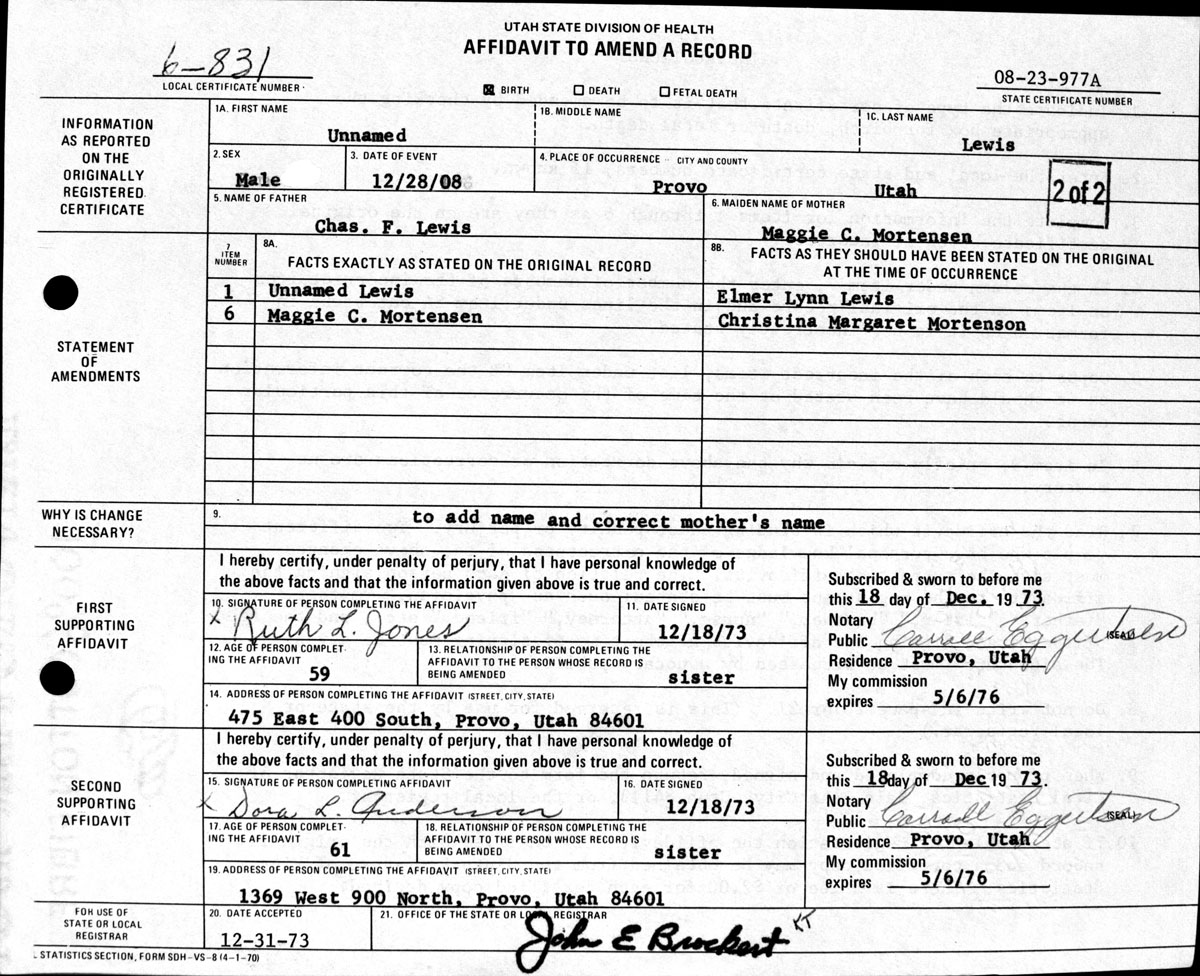 UTAH STATE DIVISION OF HEALTH
AFFIDAVIT TO AMEND A RECORD
6-831
LOCAL CERTIFICATE NUMBER
☒ BIRTH ☐ DEATH ☐ FETAL DEATH
08-23-977A
STATE CERTIFICATE NUMBER
INFORMATION
AS REPORTED
ON THE
ORIGINALLY
REGISTERED
CERTIFICATE
1A. FIRST NAME
Unnamed
1B. MIDDLE NAME
1C. LAST NAME
Lewis
2. SEX
Male
3. DATE OF EVENT
12/28/08
4. PLACE OF OCCURRENCE - CITY AND COUNTY
Provo Utah
2 of 2
5. NAME OF FATHER
Chas. F. Lewis
6. MAIDEN NAME OF MOTHER
Maggie C. Mortensen
STATEMENT
OF
AMENDMENTS
7
ITEM
NUMBER
8A.
FACTS EXACTLY AS STATED ON THE ORIGINAL RECORD
8B.
FACTS AS THEY SHOULD HAVE BEEN STATED ON THE ORIGINAL
AT THE TIME OF OCCURRENCE
1 Unnamed Lewis Elmer Lynn Lewis
6 Maggie C. Mortensen Christina Margaret Mortenson
WHY IS CHANGE
NECESSARY?
9. to add name and correct mother's name
FIRST
SUPPORTING
AFFIDAVIT
I hereby certify, under penalty of perjury, that I have personal knowledge of
the above facts and that the information given above is true and correct.
10. SIGNATURE OF PERSON COMPLETING THE AFFIDAVIT
x Ruth L. Jones
11. DATE SIGNED
12/18/73
12. AGE OF PERSON COMPLET-
ING THE AFFIDAVIT
59
13. RELATIONSHIP OF PERSON COMPLETING THE
AFFIDAVIT TO THE PERSON WHOSE RECORD IS
BEING AMENDED
sister
14. ADDRESS OF PERSON COMPLETING THE AFFIDAVIT (STREET, CITY, STATE)
475 East 400 South, Provo, Utah 84601
Subscribed & sworn to before me
this 18 day of Dec. 19 73.
Notary
Public Carroll Eggertsen (SEAL)
Residence Provo, Utah
My commission
expires 5/6/76
SECOND
SUPPORTING
AFFIDAVIT
I hereby certify, under penalty of perjury, that I have personal knowledge of
the above facts and that the information given above is true and correct.
15. SIGNATURE OF PERSON COMPLETING AFFIDAVIT
x Dora L. Anderson
16. DATE SIGNED
12/18/73
17. AGE OF PERSON COMPLET-
ING THE AFFIDAVIT
61
18. RELATIONSHIP OF PERSON COMPLETING THE
AFFIDAVIT TO THE PERSON WHOSE RECORD IS
BEING AMENDED
sister
19. ADDRESS OF PERSON COMPLETING THE AFFIDAVIT (STREET, CITY, STATE)
1369 West 900 North, Provo, Utah 84601
Subscribed & sworn to before me
this 18 day of Dec 19 73.
Notary
Public Carroll Eggertsen (SEAL)
Residence Provo, Utah
My commission
expires 5/6/76
FOR USE OF
STATE OR LOCAL
REGISTRAR
20. DATE ACCEPTED
12-31-73
21. OFFICE OF THE STATE OR LOCAL REGISTRAR
John E Brockert KT
STATISTICS SECTION, FORM SDH-VS-8 (4-1-70)